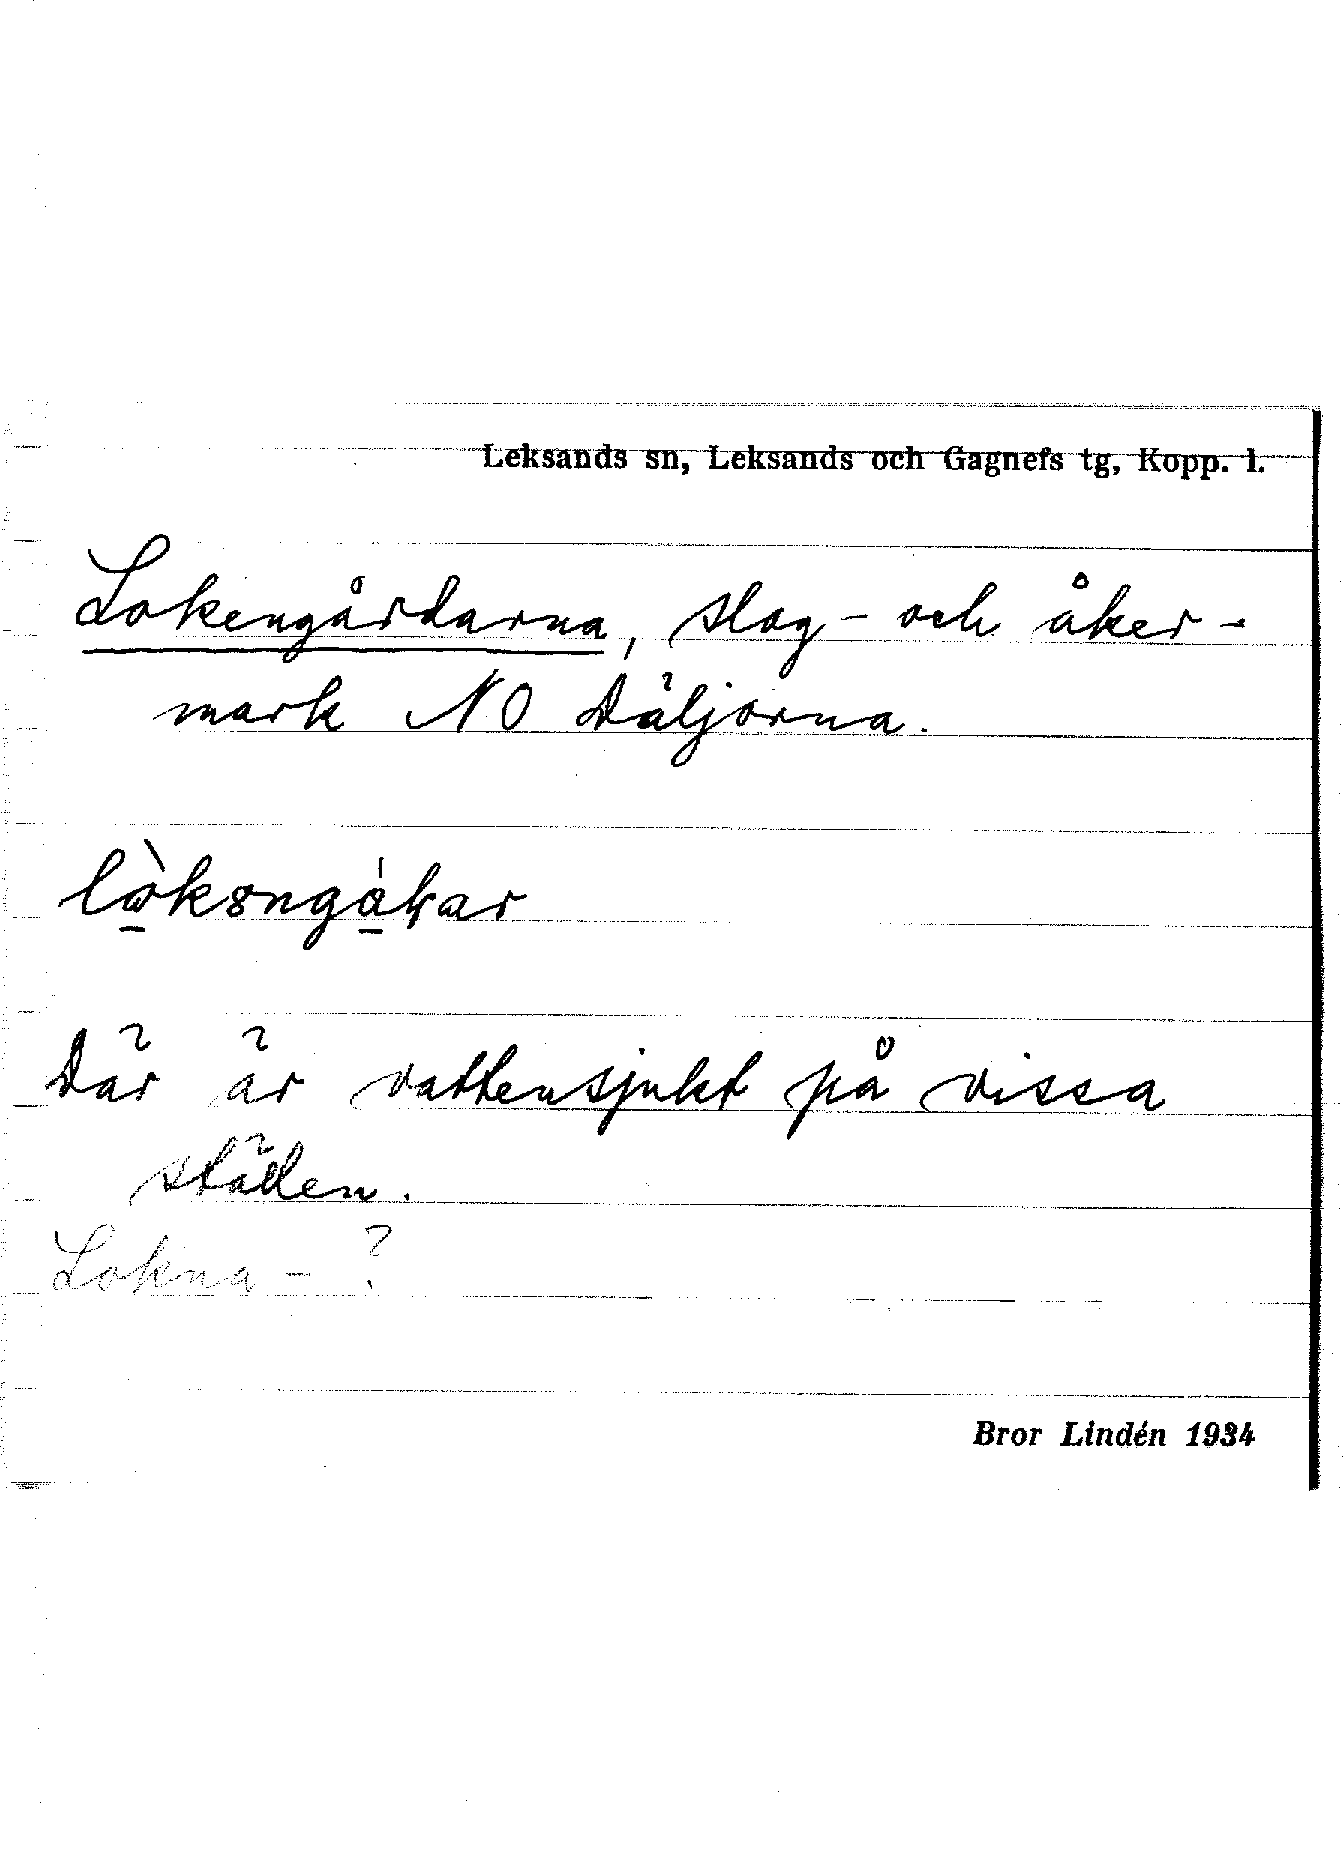 Leksands sn, Leksands och Gagnefs tg, Kopp. l.
Lokengårdarna, slog- och åker-
mark NO Däljorna.
Där är vattensjukt på vissa
ställen.
Lokna - ?
Bror Lindén 1934